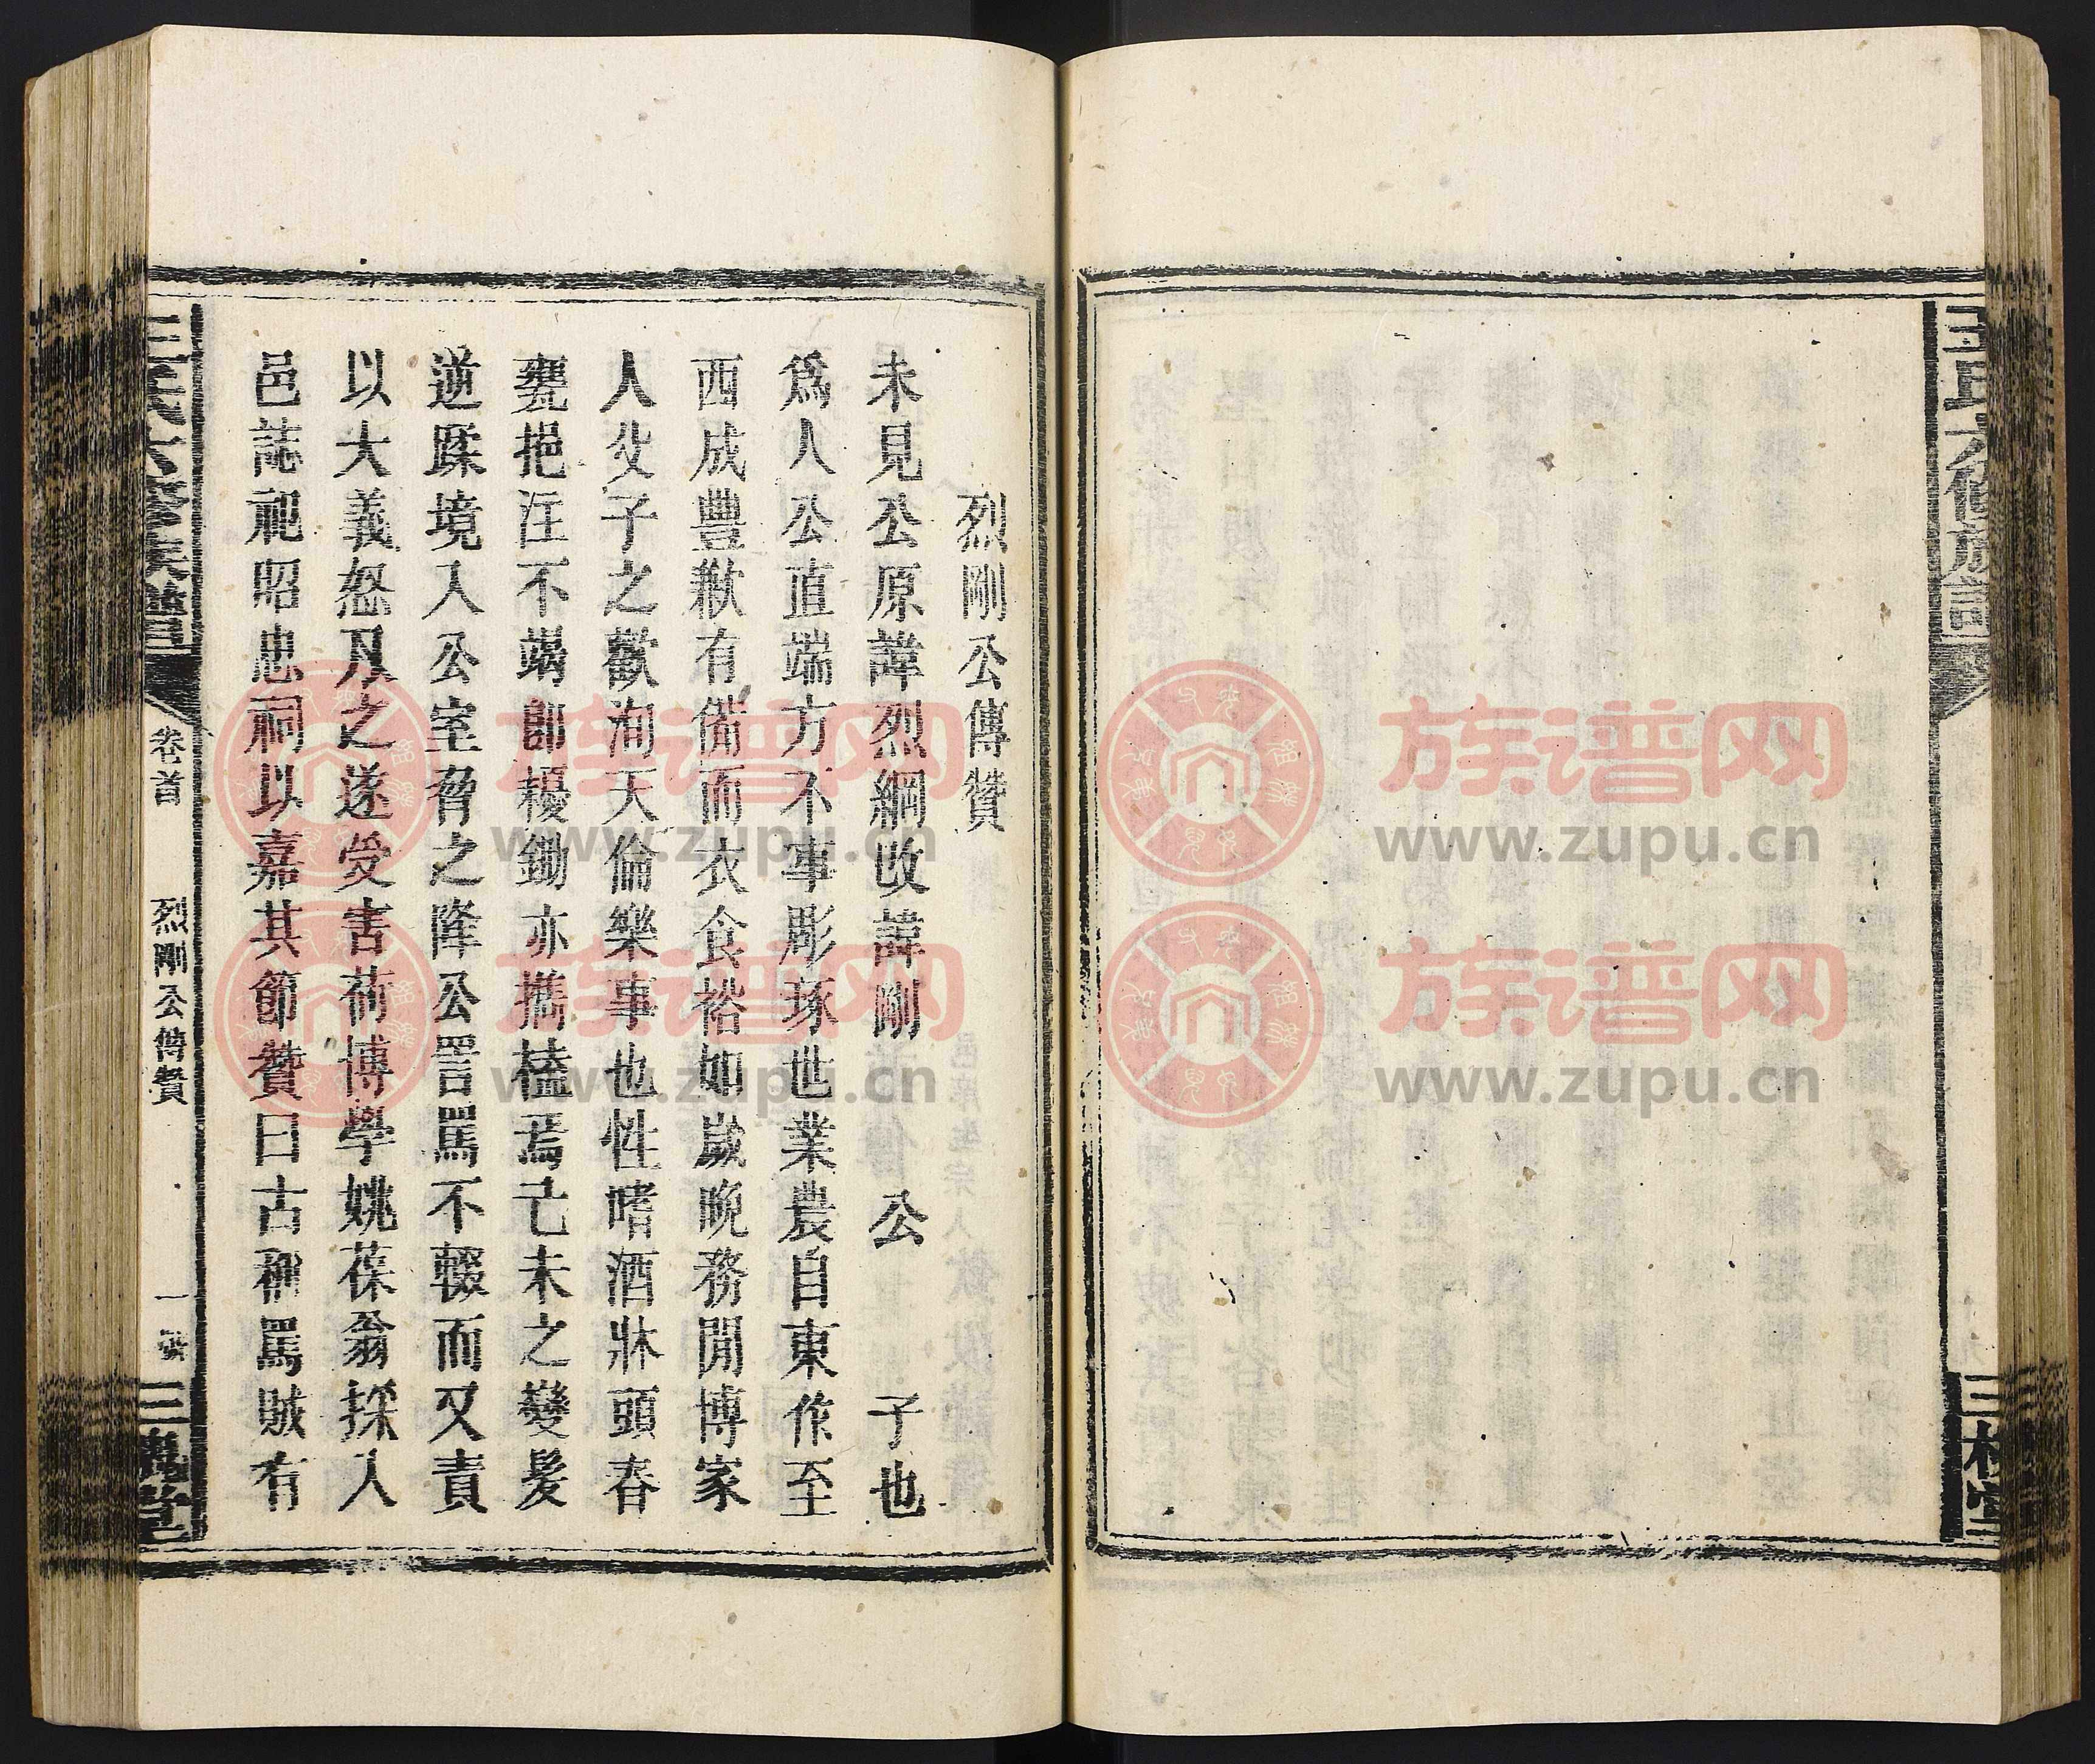 王氏六修族譜
三槐堂
烈剛公傳贊
未見公原諱烈綱改諱剛 公 子也
爲人公直端方不事彫琢世業農自東作至
西成豐歉有備而衣食裕如歲晚務閒博家
人父子之歡洵天倫樂事也性嗜酒牀頭春
甕挹注不竭卽耰鋤亦攜榼焉己未之變髮
逆蹂境入公室脅之降公詈罵不輟而又責
以大義怒及之遂受害荷博學姚葆翁採入
邑誌祀昭忠祠以嘉其節贊曰古稱罵賊有
王氏六修族譜
卷首
烈剛公傳贊
一
三槐堂
族谱网
www.zupu.cn
族谱网
www.zupu.cn
族谱网
www.zupu.cn
族谱网
www.zupu.cn